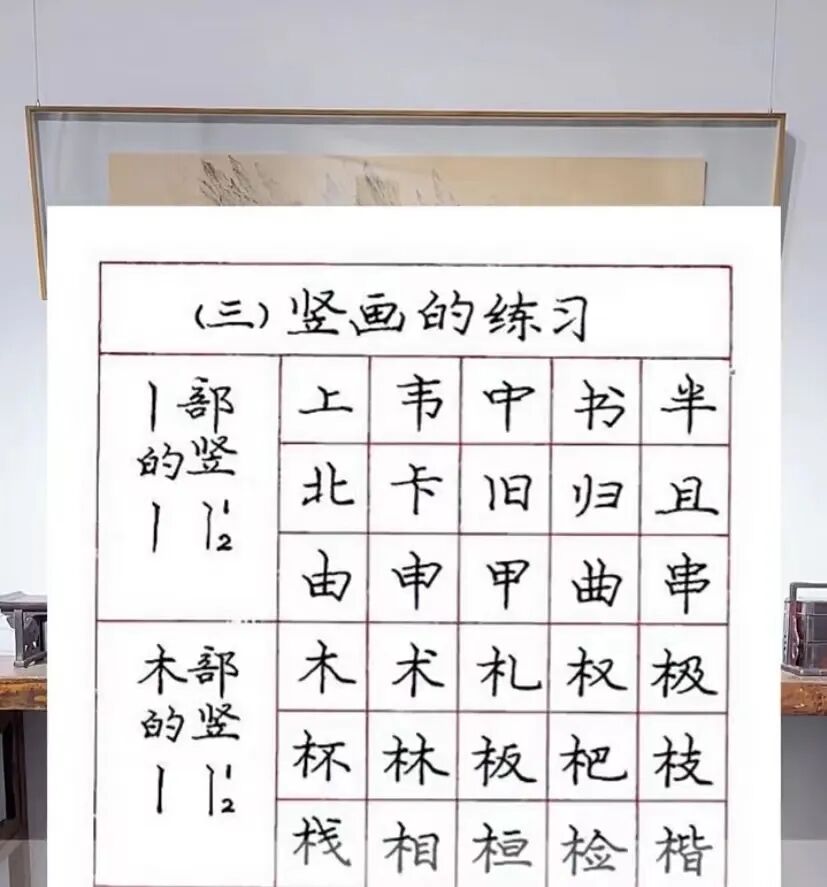 (三)竖画的练习
丨部
的竖
丨 丨1
2
上 韦 中 书 半
北 卡 旧 归 且
由 申 甲 曲 串
木部
的竖
丨 丨1
2
木 术 札 权 极
杯 林 板 杷 枝
栈 相 桓 检 楷